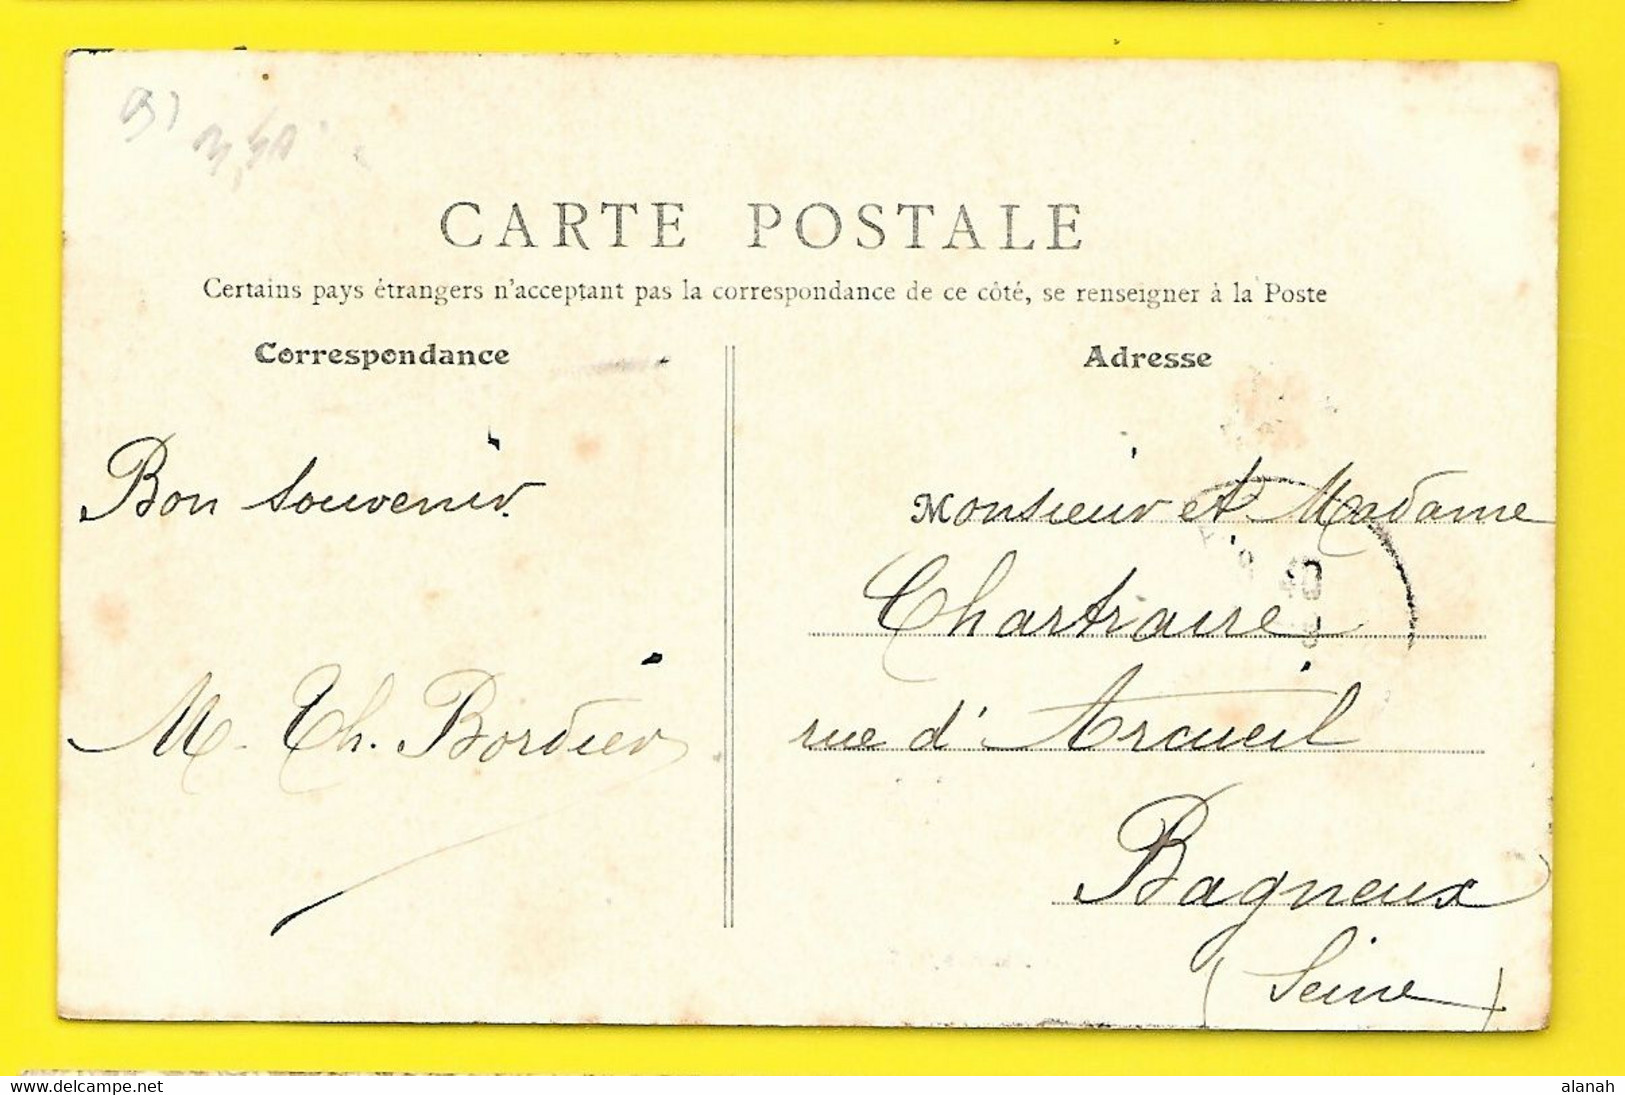 CARTE POSTALE
Certains pays étrangers n'acceptant pas la correspondance de ce côté, se renseigner à la Poste
Correspondance
Adresse
Bon souvenir.
M. Th. Bordier
Monsieur et Madame
Chartraire
rue d'Arcueil
Bagneux
(Seine)
www.delcampe.net
alanah